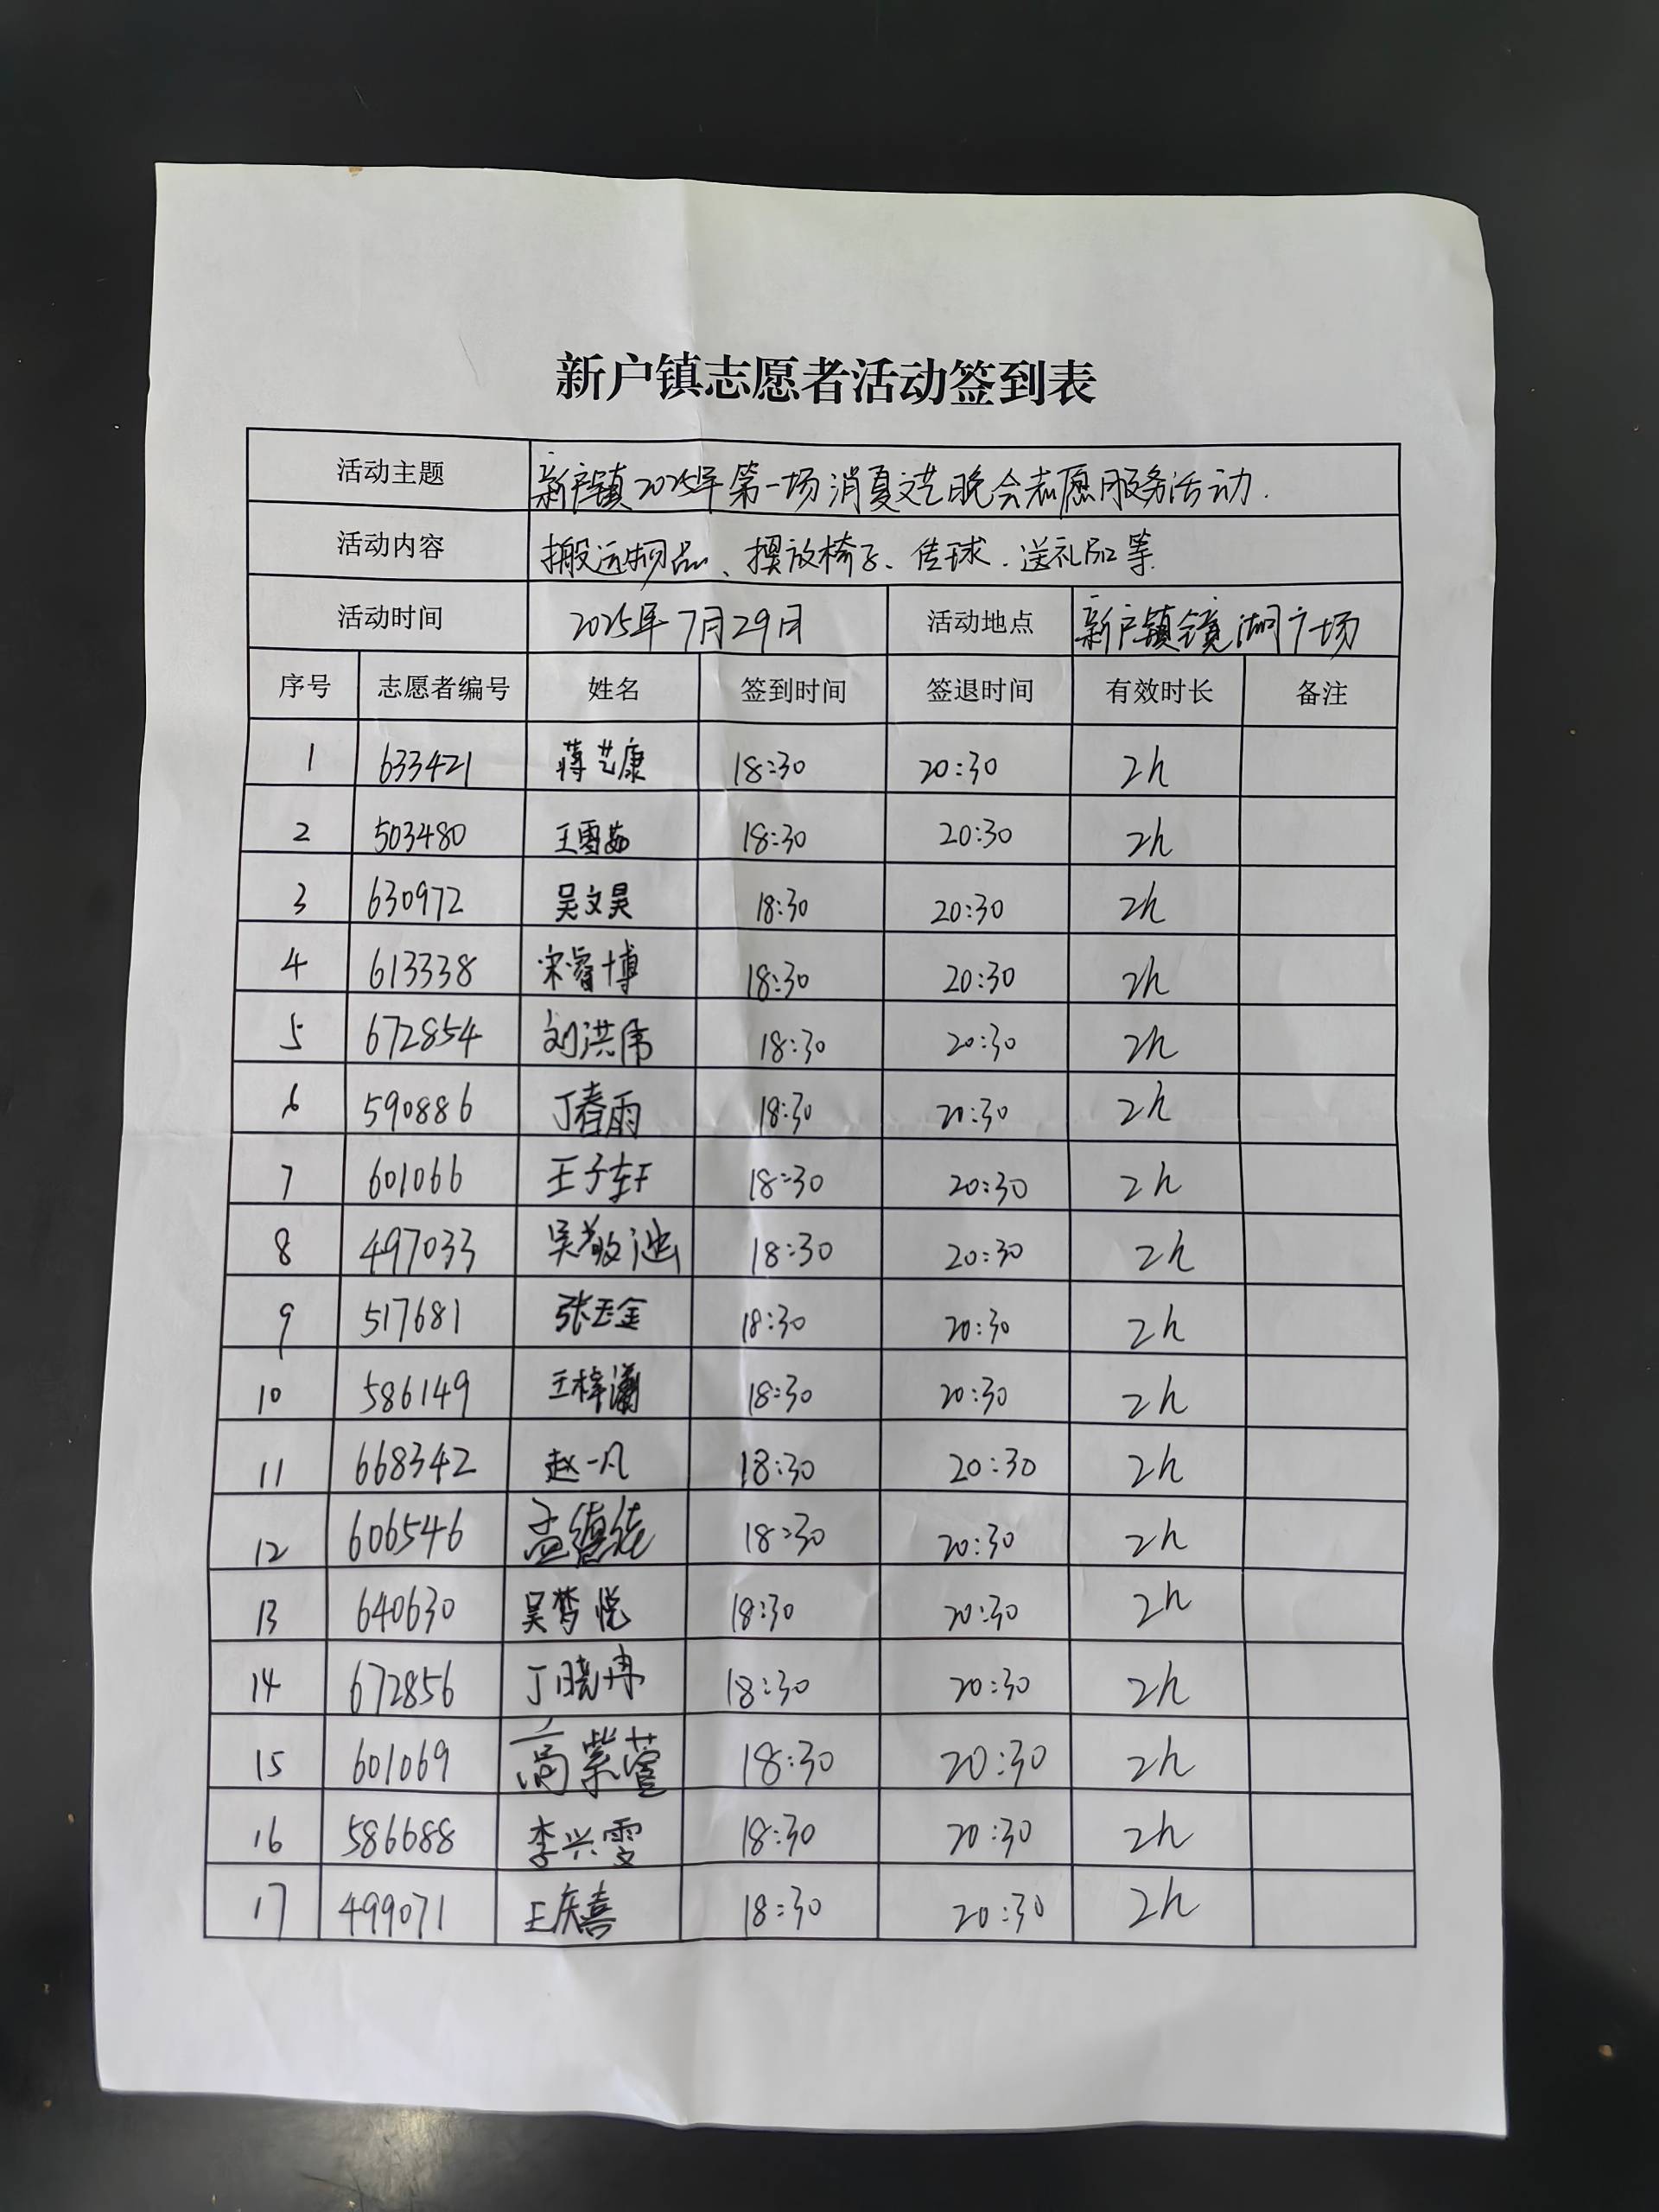 新户镇志愿者活动签到表
活动主题 新户镇2025年第一场消夏文艺晚会志愿服务活动.
活动内容 搬运物品、摆放椅子、传球、送礼品等
活动时间 2025年7月29日 活动地点 新户镇镜湖广场
序号 志愿者编号 姓名 签到时间 签退时间 有效时长 备注
1 633421 蒋艺康 18:30 20:30 2h
2 503480 王雪茹 18:30 20:30 2h
3 630972 吴文昊 18:30 20:30 2h
4 613338 宋睿博 18:30 20:30 2h
5 672854 刘洪伟 18:30 20:30 2h
6 590886 丁春雨 18:30 20:30 2h
7 601066 王子轩 18:30 20:30 2h
8 497033 吴敬 18:30 20:30 2h
9 517681 张玉金 18:30 20:30 2h
10 586149 王梓潇 18:30 20:30 2h
11 668342 赵一凡 18:30 20:30 2h
12 606546 孟德 18:30 20:30 2h
13 640630 吴梦悦 18:30 20:30 2h
14 672856 丁晓冉 18:30 20:30 2h
15 601069 高紫萱 18:30 20:30 2h
16 586688 李兴雯 18:30 20:30 2h
17 499071 王庆喜 18:30 20:30 2h